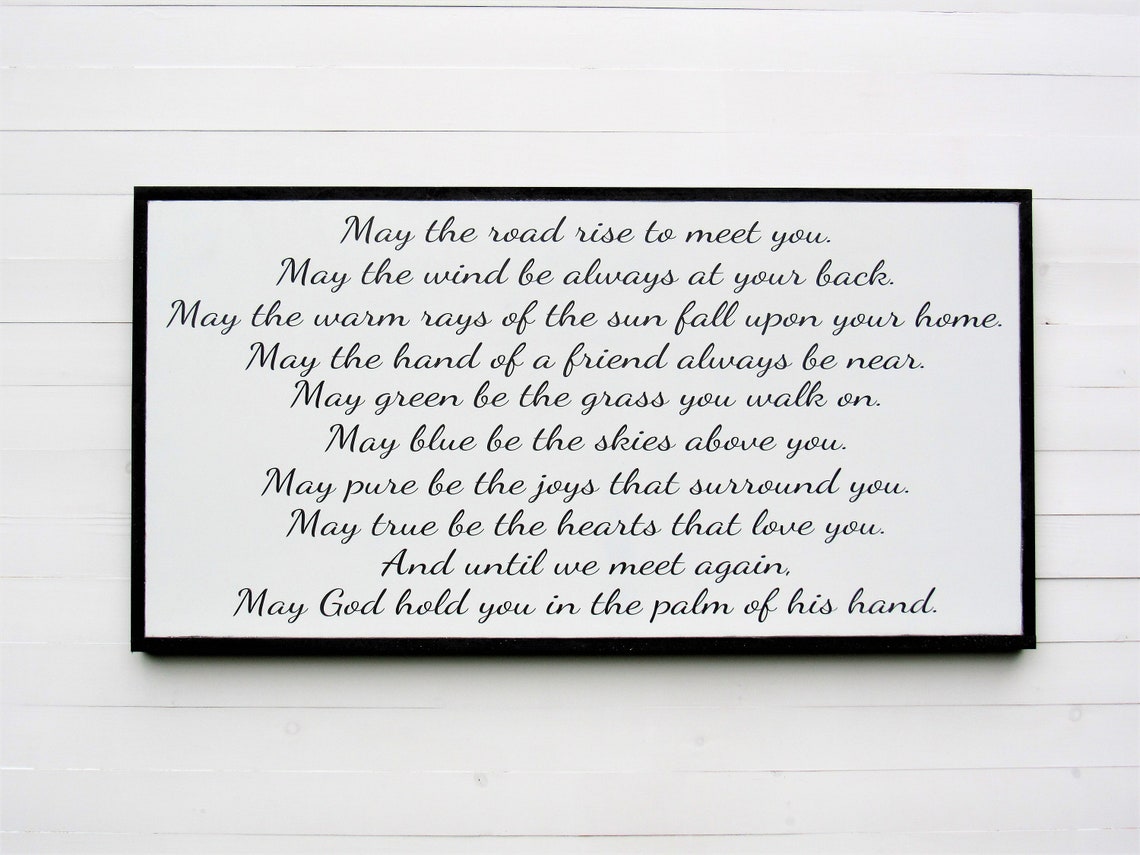 May the road rise to meet you.
May the wind be always at your back.
May the warm rays of the sun fall upon your home.
May the hand of a friend always be near.
May green be the grass you walk on.
May blue be the skies above you.
May pure be the joys that surround you.
May true be the hearts that love you.
And until we meet again,
May God hold you in the palm of his hand.